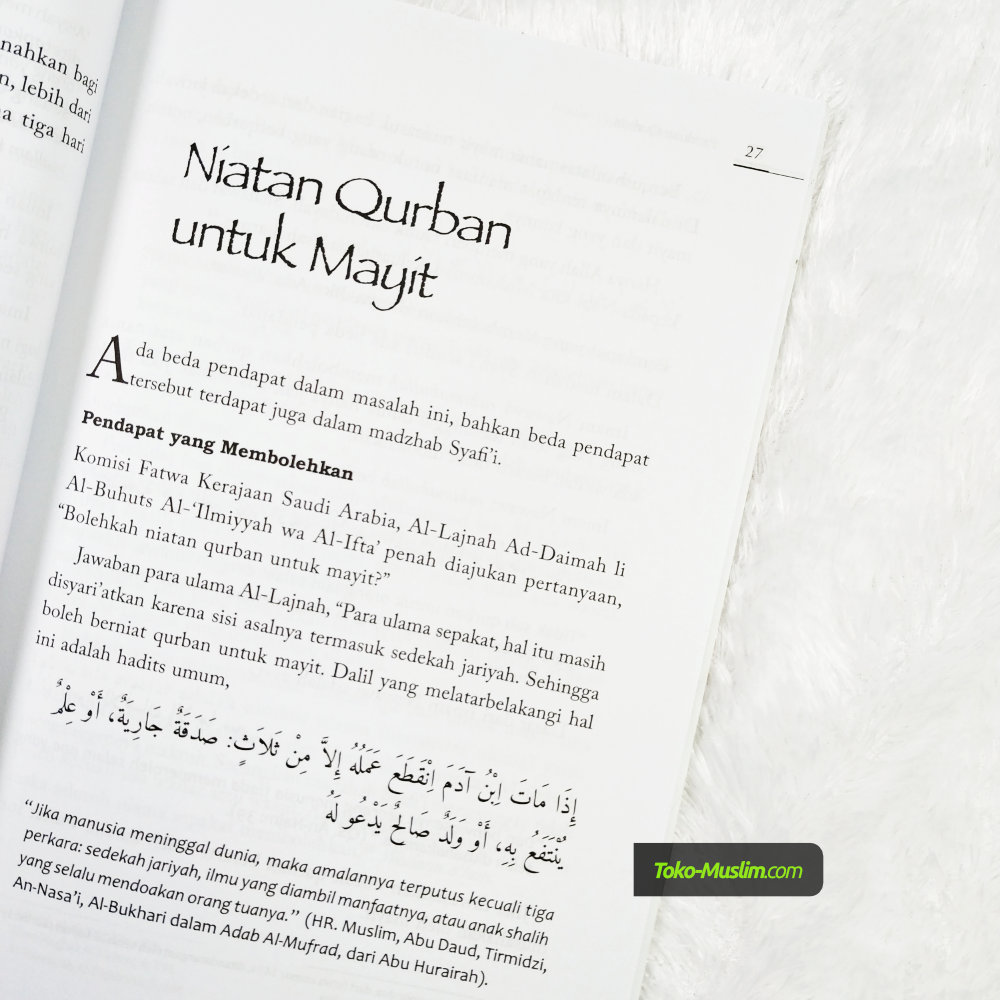 nahkan bagi
n, lebih dari
a tiga hari
27
Niatan Qurban
untuk Mayit
Ada beda pendapat dalam masalah ini, bahkan beda pendapat
tersebut terdapat juga dalam madzhab Syafi'i.
Pendapat yang Membolehkan
Komisi Fatwa Kerajaan Saudi Arabia, Al-Lajnah Ad-Daimah li
Al-Buhuts Al-'Ilmiyyah wa Al-Ifta' penah diajukan pertanyaan,
"Bolehkah niatan qurban untuk mayit?"
Jawaban para ulama Al-Lajnah, "Para ulama sepakat, hal itu masih
disyari'atkan karena sisi asalnya termasuk sedekah jariyah. Sehingga
boleh berniat qurban untuk mayit. Dalil yang melatarbelakangi hal
ini adalah hadits umum,
إِذَا مَاتَ اِبْنُ آدَمَ اِنْقَطَعَ عَمَلُهُ إِلاَّ مِنْ ثَلاَثٍ: صَدَقَةٌ جَارِيَةٌ، أَوْ عِلْمٌ
يُنْتَفَعُ بِهِ، أَوْ وَلَدٌ صَالِحٌ يَدْعُو لَهُ
"Jika manusia meninggal dunia, maka amalannya terputus kecuali tiga
perkara: sedekah jariyah, ilmu yang diambil manfaatnya, atau anak shalih
yang selalu mendoakan orang tuanya." (HR. Muslim, Abu Daud, Tirmidzi,
An-Nasa'i, Al-Bukhari dalam Adab Al-Mufrad, dari Abu Hurairah).
Toko-Muslim.com